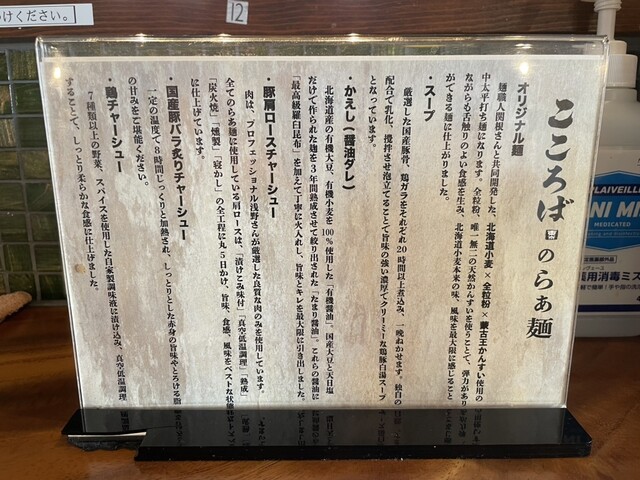 けください。
12
こころばのらぁ麺
オリジナル麺
麺職人関根さんと共同開発した、北海道小麦×全粒粉×蒙古王かんすい使用の
中太平打ち麺になります。全粒粉、唯一無二の天然かんすいを使うことで、弾力があり
ながらも舌触りのよい食感を生み、北海道小麦本来の味、風味を最大限に感じること
ができる麺に仕上がりました。
・スープ
厳選した国産豚骨、鶏ガラをそれぞれ20時間以上煮込み、一晩ねかせます。独自の
配合で乳化、攪拌させ泡立てることで旨味の強い濃厚でクリーミーな鶏豚白湯スープ
となっています。
・かえし(醤油タレ)
北海道産の有機大豆、有機小麦を100%使用した「有機醤油」。国産大豆と天日塩
だけで作られた麹を3年間熟成させて絞り出された「たまり醤油」。これらの醤油に
「最高級羅臼昆布」を加えて丁寧に火入れし、旨味とキレを最大限に引き出しました。
・豚肩ロースチャーシュー
肉は、プロフェッショナル浅野さんが厳選した良質な肉のみを使用しています。
全てのらぁ麺に使用している肩ロースは、「漬けこみ味付」「真空低温調理」「熟成」
「炭火焼」「燻製」「寝かし」の全工程は丸5日かけ、旨味、食感、風味をベストな状態
に仕上げています。
・国産豚バラ炙りチャーシュー
一定の温度で8時間じっくりと加熱され、しっとりとした赤身の旨味やとろける脂
の甘みをご堪能ください。
・鶏チャーシュー
7種類以上の野菜、スパイスを使用した自家製調味液に漬け込み、真空低温調理
することで、しっとり柔らかな食感に仕上げました。
PLAIVEILLE
NI MI
MEDICATED
用消毒ミス